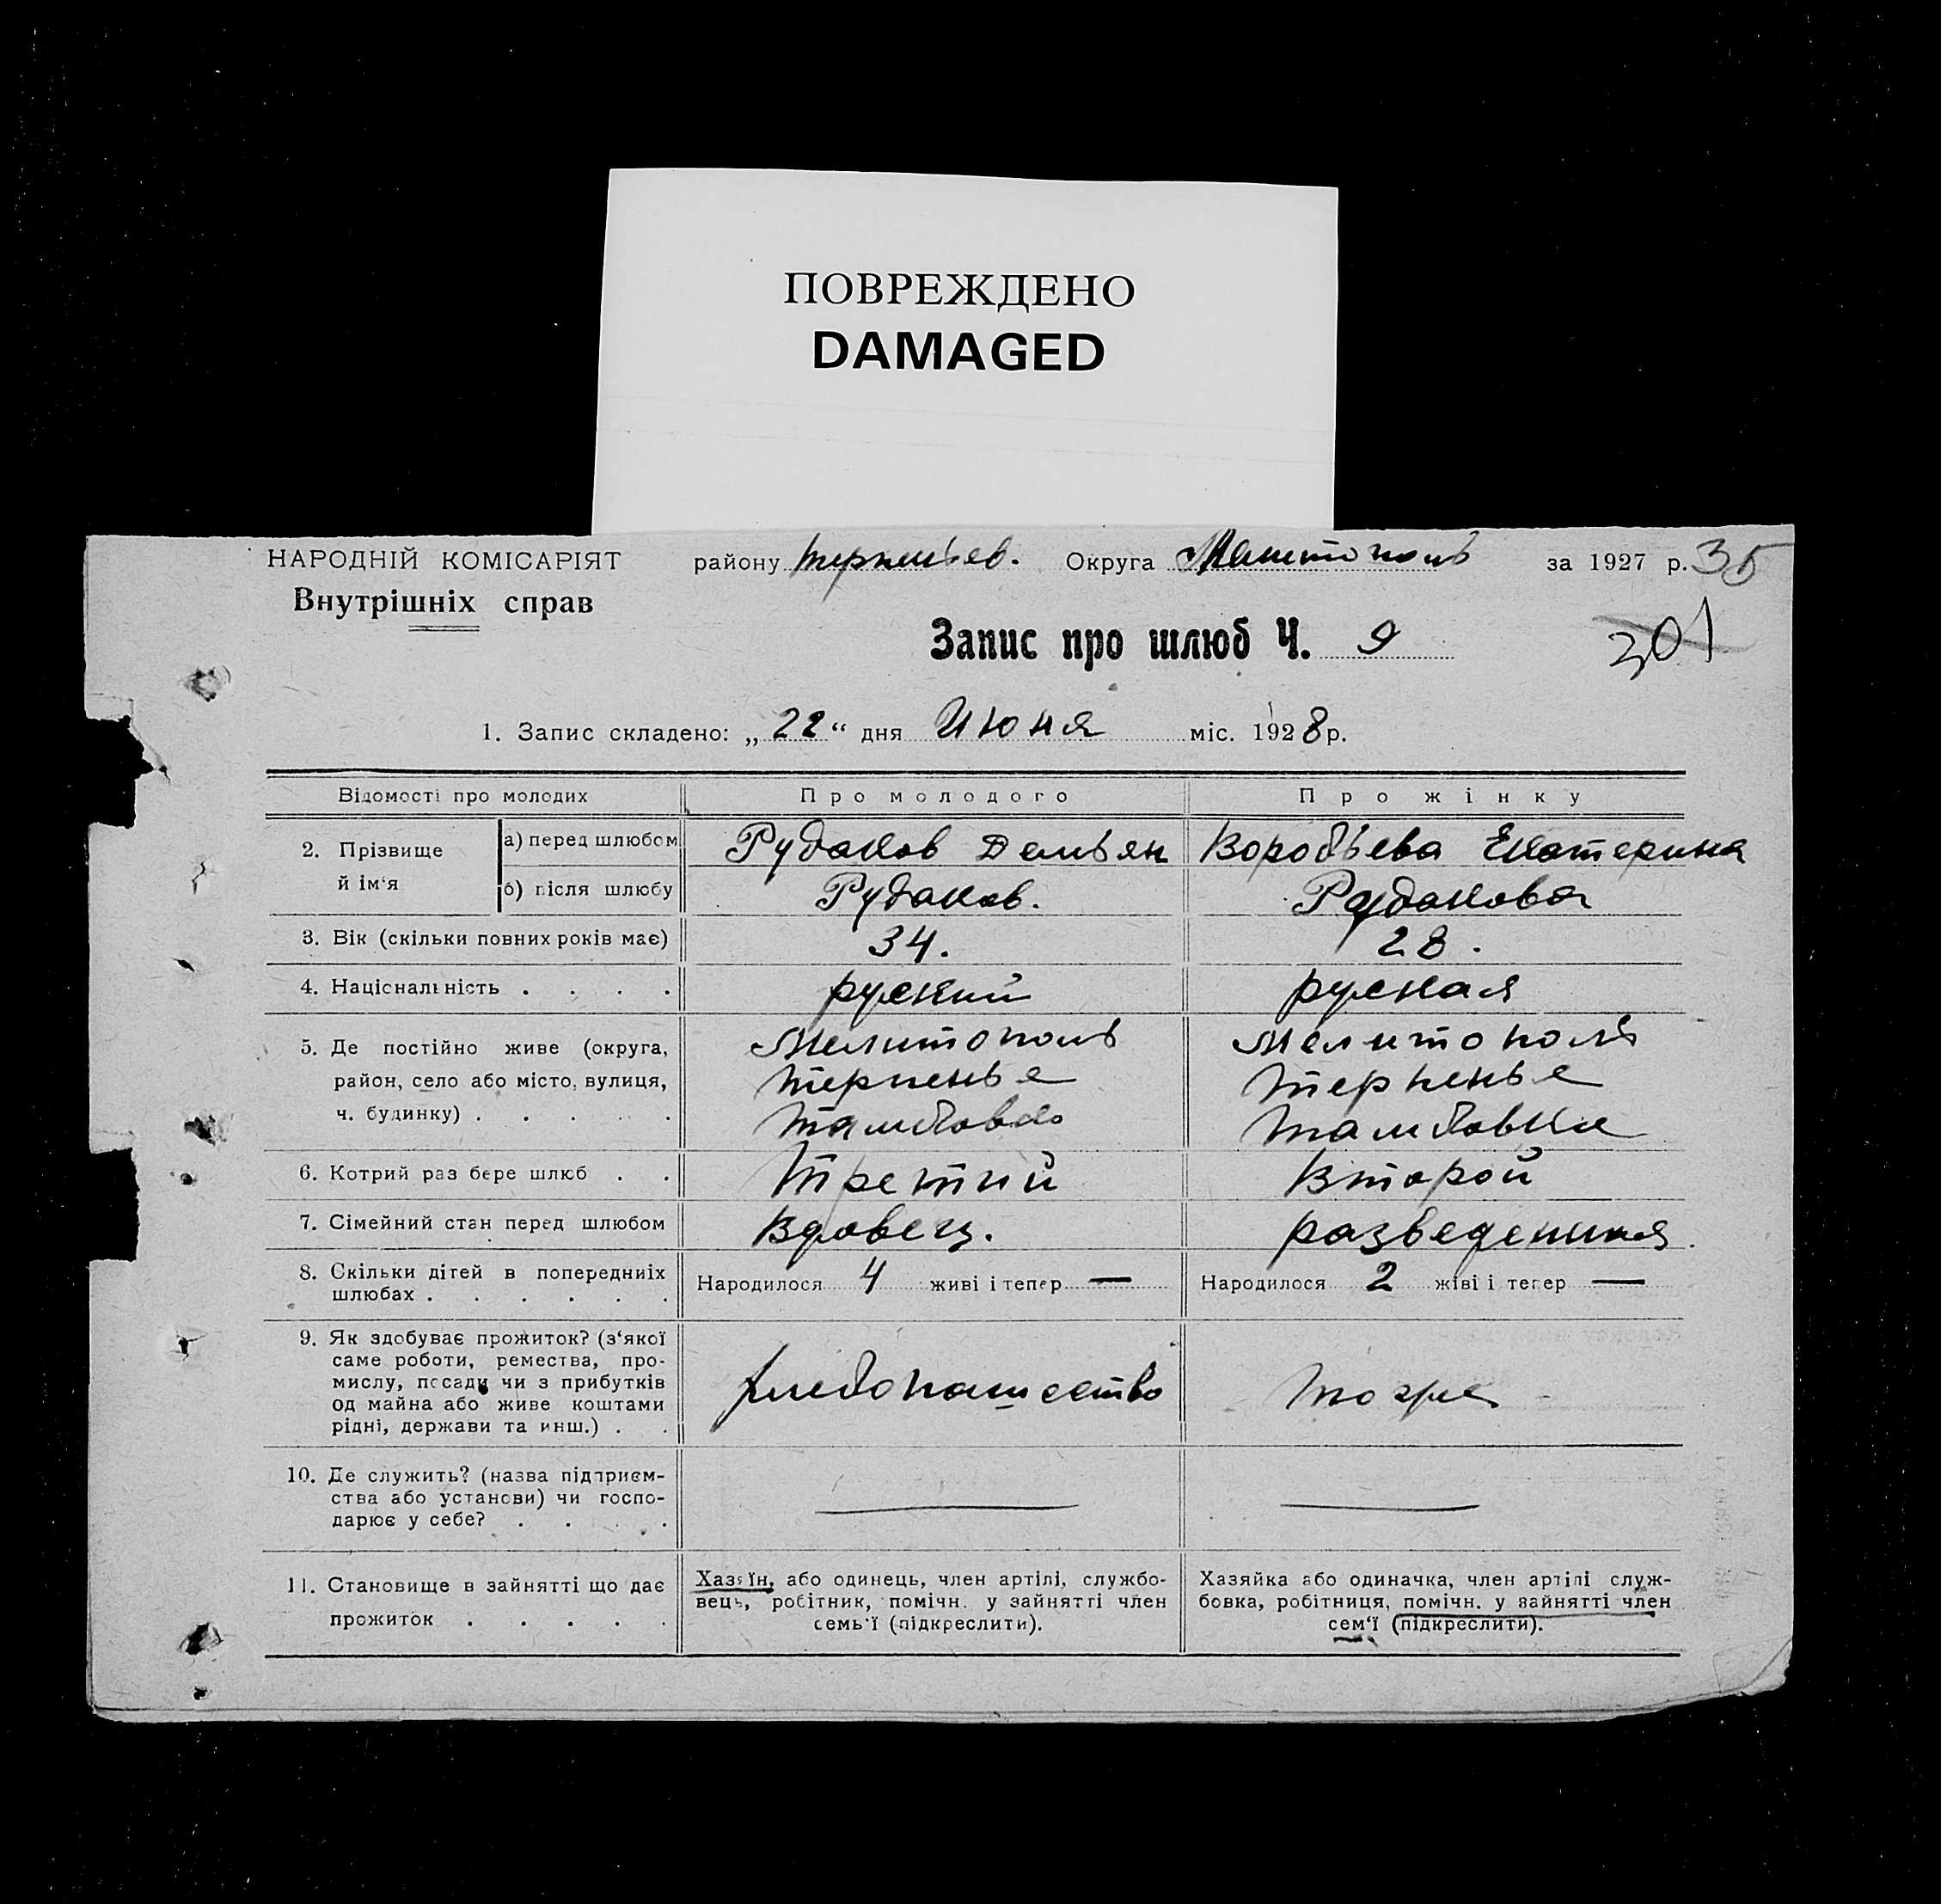 ПОВРЕЖДЕНО
DAMAGED
НАРОДНІЙ КОМІСАРІЯТ району терпеньев. Округа Мелитополь за 1927 р. 35
Внутрішніх справ
Запис про шлюб Ч. 9
301
1. Запис складено: „22“ дня Июня міс. 1928 р.
Відомості про молодих Про молодого Про жінку
2. Прізвище й ім'я а) перед шлюбом Рудаков Демьян Воробьева Екатерина
б) після шлюбу Рудаков. Рудакова
3. Вік (скільки повних років має) 34. 28.
4. Національність . . . . руский руская
5. Де постійно живе (округа, Мелитополь Мелитополь
район, село або місто, вулиця, терпенье терпенье
ч. будинку) . . . . . Тамбовка
6. Котрий раз бере шлюб . . Третий Второй
7. Сімейний стан перед шлюбом Вдовец. разведенная
8. Скільки дітей в попередніх Народилося 4 живі і тепер — Народилося 2 жіві і тепер —
шлюбах . . . . . .
9. Як здобуває прожиток? (з'якої
саме роботи, ремества, про-
мислу, посади чи з прибутків хлебопашество тоже
од майна або живе коштами
рідні, держави та инш.) . .
10. Де служить? (назва підприєм-
ства або установи) чи госпо-
дарює у себе? . . . .
11. Становище в зайнятті що дає Хазяїн, або одинець, член артілі, службо- Хазяйка або одиначка, член артілі служ-
прожиток . . . . . вець, робітник, помічн. у зайнятті член бовка, робітниця, помічн. у зайнятті член
семь'ї (підкреслити). сем'ї (підкреслити).